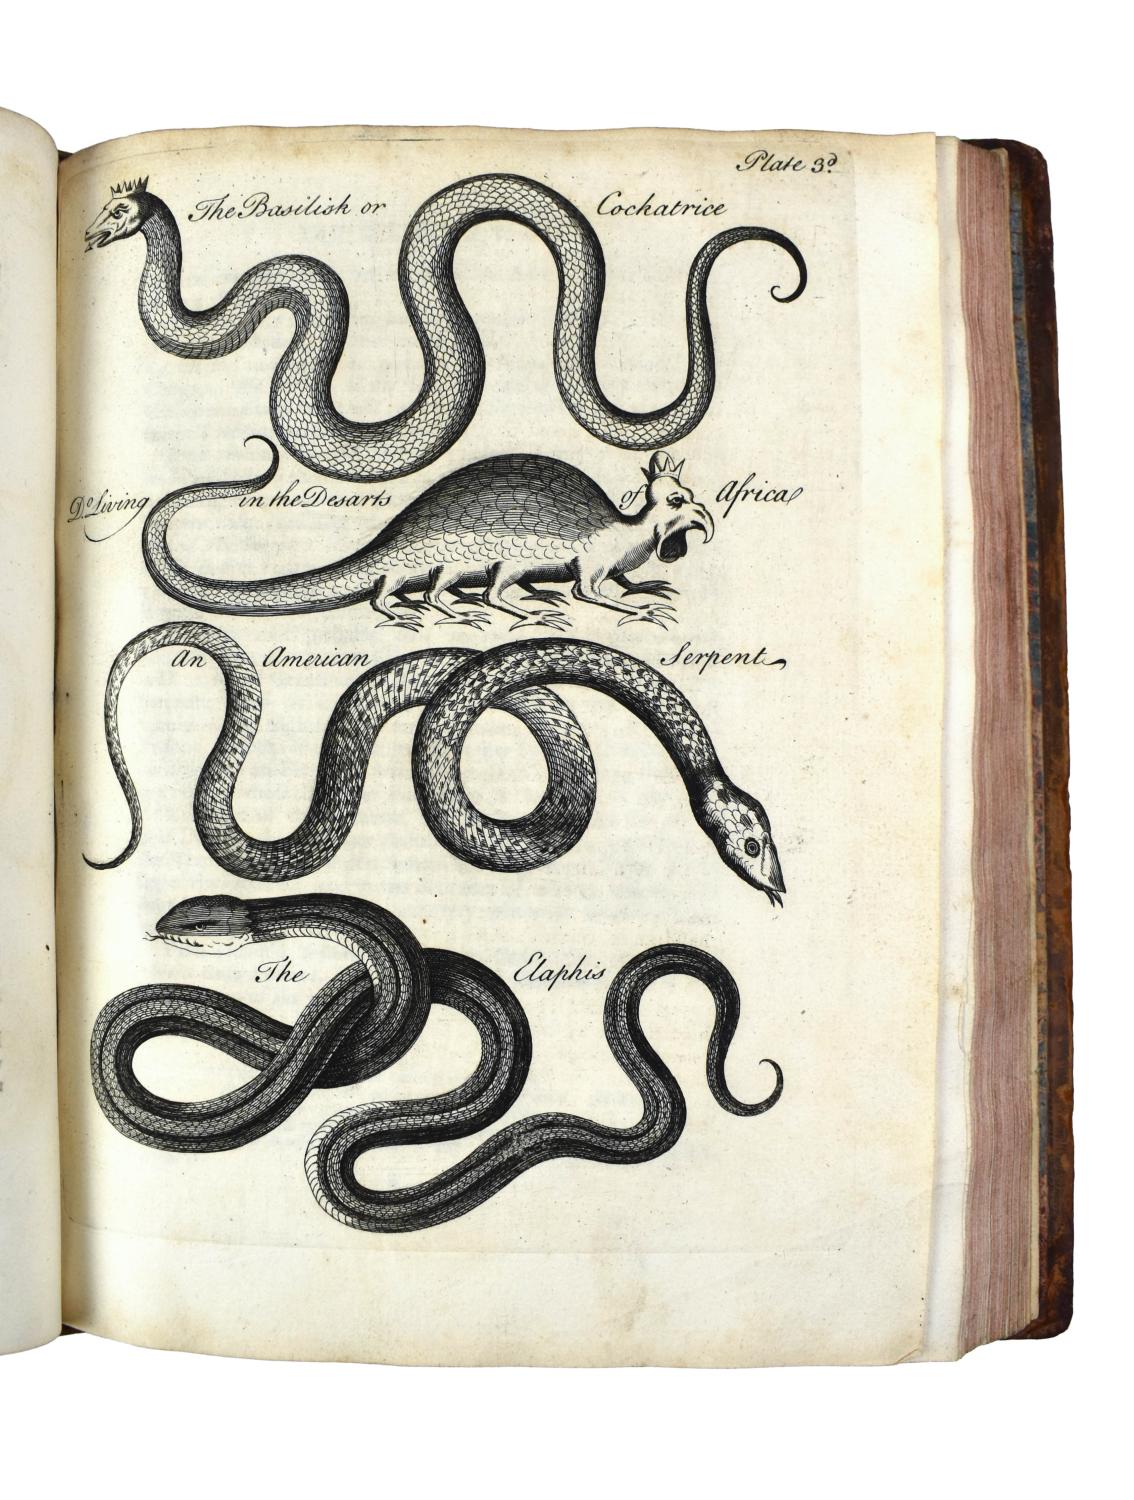 Plate 3d.
The Basilisk or Cockatrice
Do. Living in the Desarts of Africa
An American Serpent
The Elaphis